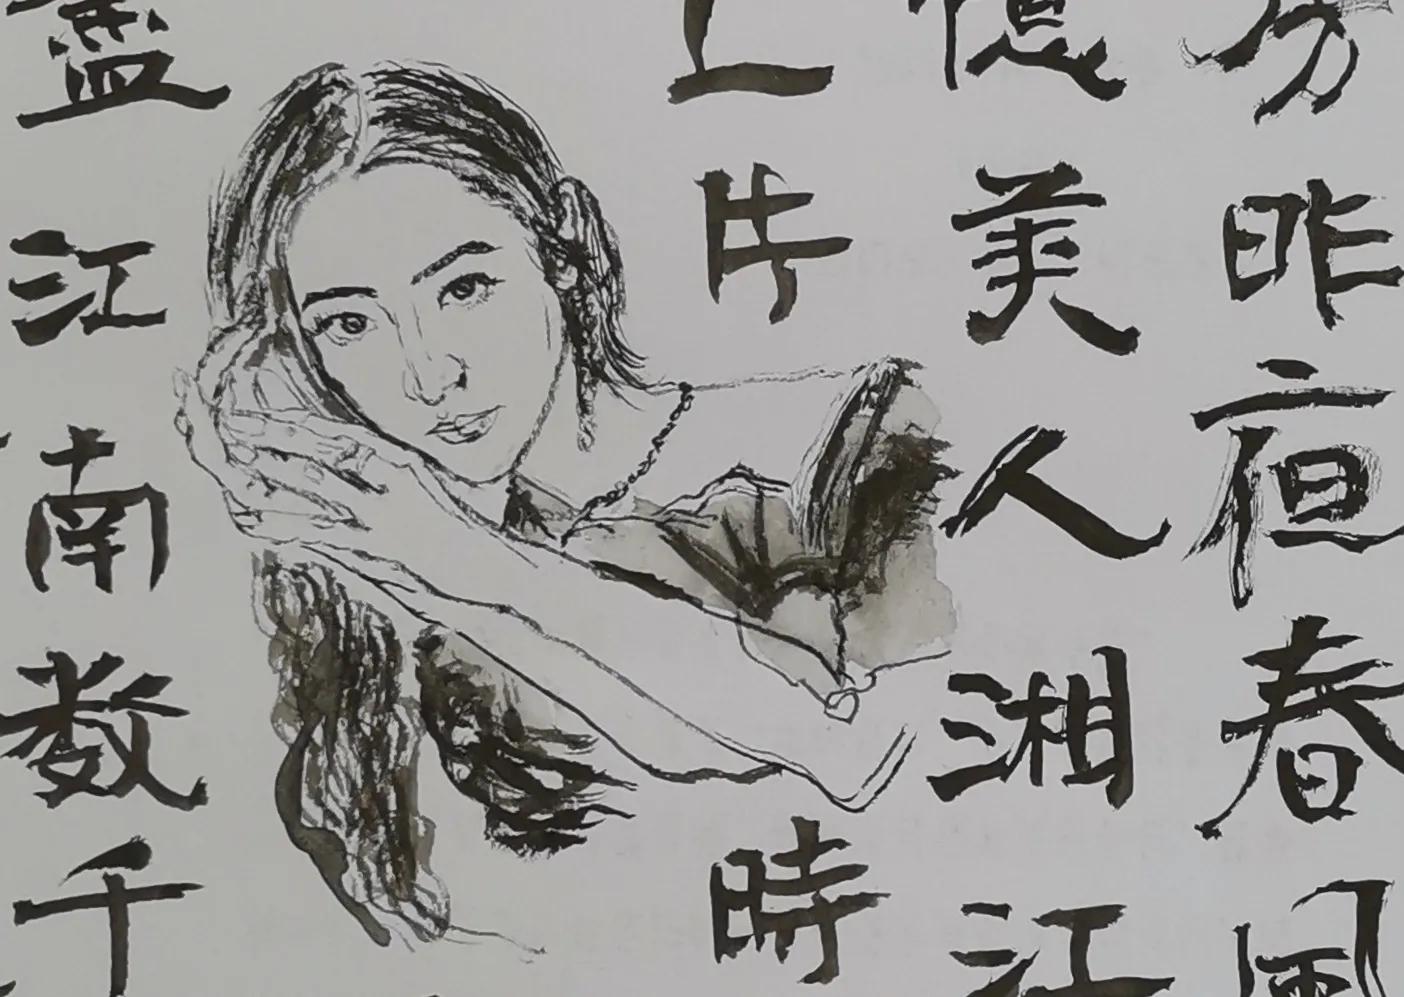 房昨夜春風
憶美人湘江
上片時
盡江南数千